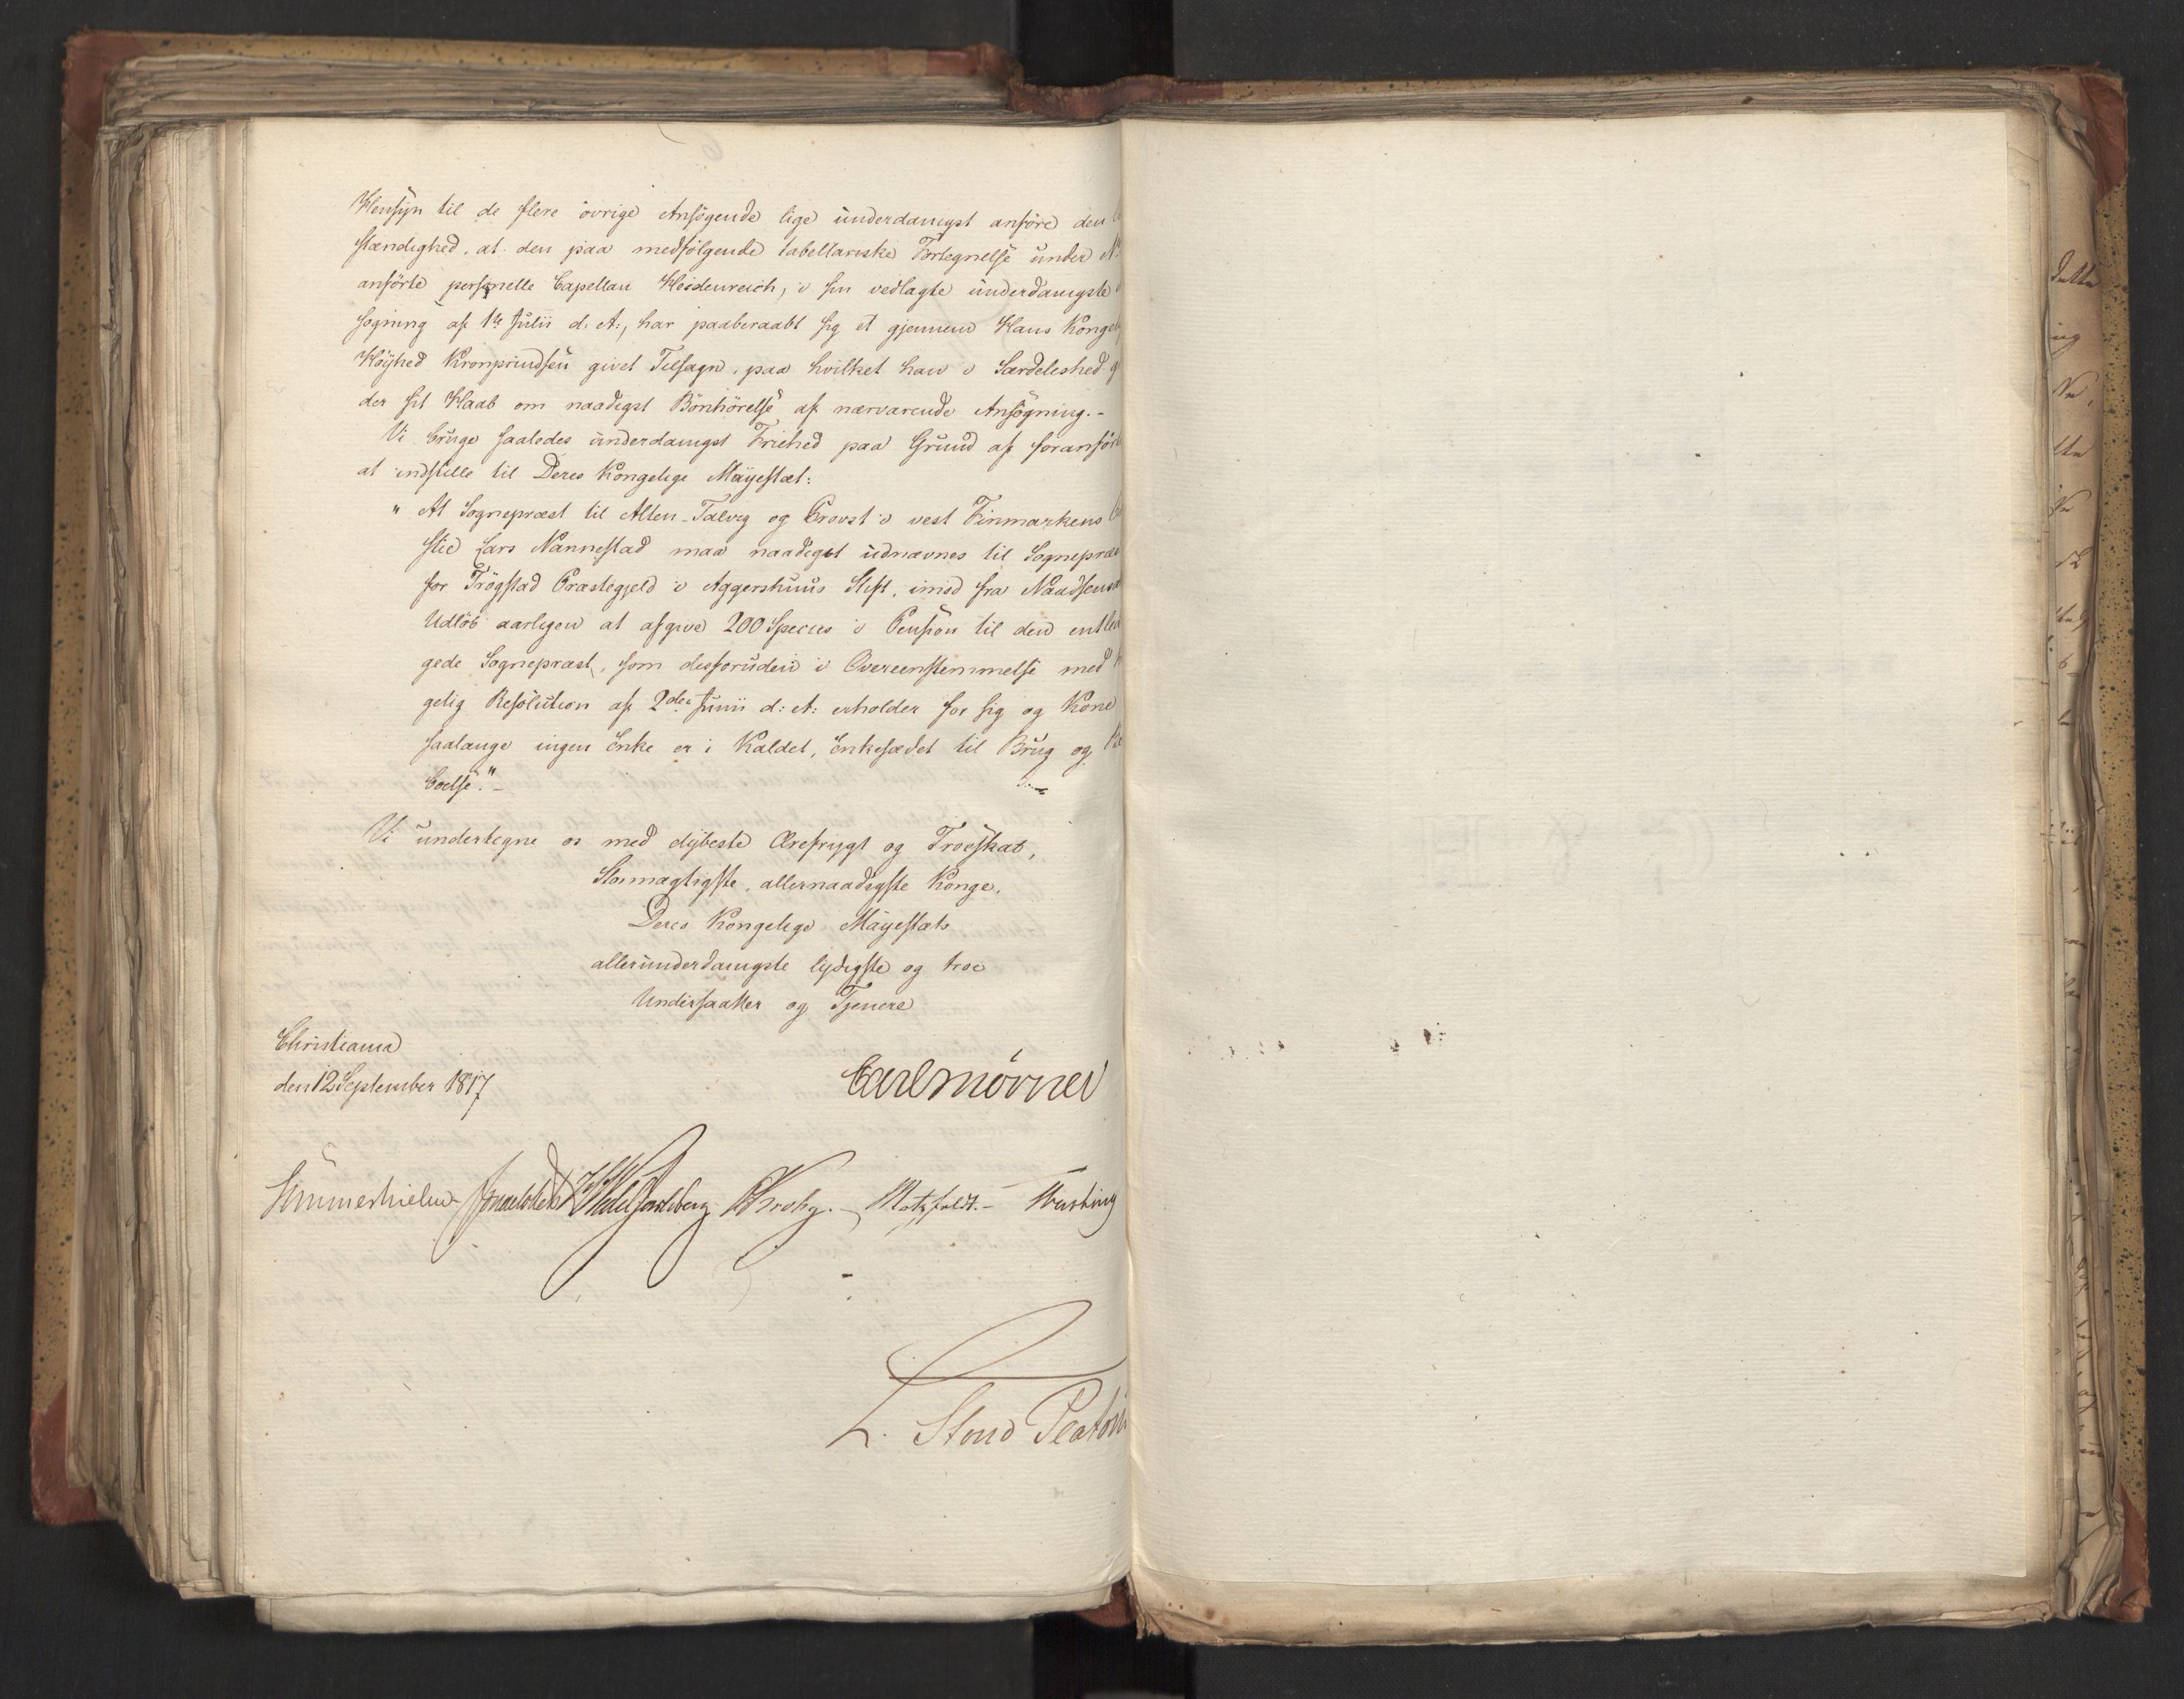 Hensÿn til de flere övrige Ansögende lige underdanigst anföre den
stændighed, at den paa medfölgende tabellariske Fortegnelse under N
anförte personelle Capellan Heidenreich, i sin vedlagte underdanigste
sögning af 1te Julii d: A:, har paaberaabt sig et gjennem Hans Konge
Höÿhed Kronprindsen givet Tilsagn, paa hvilket han i Særdeleshed g
der sit Haab om naadigst Bönhörelse af nærværende Ansögning.-
Vi bruge saaledes underdanigst Friehed paa Grund af foranför
at indstille til Deres Kongelige Maÿestæt:
" At Sognepræst til Alten-Talvig og Provst i vest Finmarkens
stie Lars Nannestad maa naadigst udnævnes til Sognepræ
for Trögstad Præstegjeld i Aggershuus Stift, imod fra Naadsens
Udlöb aarligen at afgive 200 Species i Pension til den entled
gede Sognepræst, som desforuden i Overeenstemmelse med
gelig Resolution af 2den Junii d: A: erholder for sig og Kone
saalænge ingen Enke er i Kaldet, Enkesædet til Brug og Be
boelse."-
Vi undertegne os med dÿbeste Ærefrÿgt og Troeskab,
Stormægtigste, allernaadigste Konge,
Deres Kongelige Maÿestæts
allerunderdanigste lÿdigste og troe
Undersaatter og Tjenere
Christiania
den 12 September 1817
Carl Mörner
Sommerhielm Motzfeldt.-
L. Stoud Platou